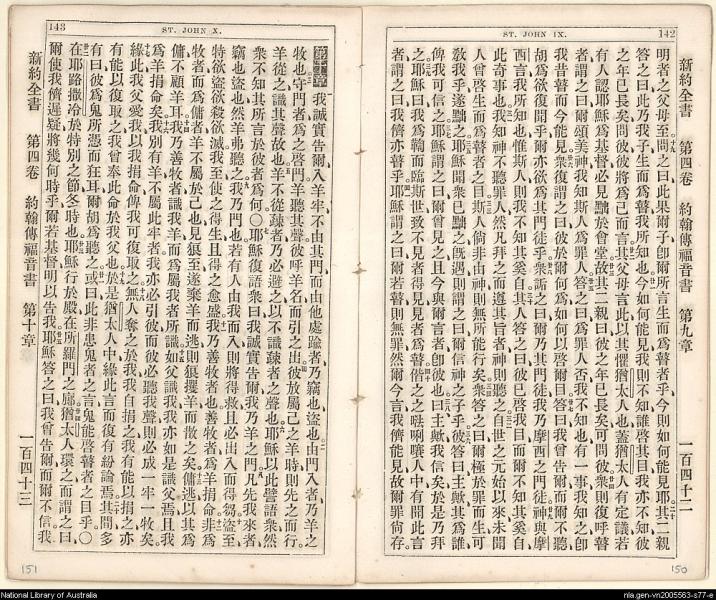 142
ST. JOHN IX.
新約全書 第四卷 約翰傳福音書 第九章 一百四十二
明者之父母至問之曰此果爾子卽爾所言生而爲瞽者乎今則如何能見耶其二親
答之曰此乃我子生而爲瞽我所知也今如何能見我則不知誰啓其目我亦不知彼
之年已長矣問彼彼將爲己而言其父母言此以其懼猶太人也蓋猶太人有定議若
有人認耶穌爲基督必見黜於會堂故其二親曰彼之年已長矣可問彼衆則復呼瞽
者謂之曰爾頌美神我知斯人爲罪人答之曰爲罪人否我不知也有一事我知之卽
我昔瞽而今能見衆復謂之曰彼於爾何爲如何以啓爾目答曰我曾告爾而爾不聽
胡爲欲復聞乎爾亦欲爲其門徒乎衆詬之曰爾乃其門徒我乃摩西之門徒神與摩
西言我所知也惟斯人則我不知其奚自其人答之曰彼已啓我目而爾不知其奚自
此奇事也我知神不聽罪人然凡拜之而遵其旨者神則聽之自世之元始以來未聞
人曾啓生而爲瞽者之目斯人倘非由神則無所能行矣衆答之曰爾極於罪而生可
敎我乎遂黜之耶穌聞衆已黜之旣遇則謂之曰爾信神之子乎彼答曰主歟其爲誰
俾我可信之耶穌謂之曰爾曾見之且今與爾言者卽彼也曰主歟我信矣於是乃拜
之耶穌曰我爲鞫而臨斯世致不見者得見見者爲瞽偕之之𠵽唎嚷人中有聞此言
者謂之曰我儕亦瞽乎耶穌謂之曰爾若瞽則無罪然爾今言我儕能見故爾罪尙存
150
143
ST. JOHN X.
第十章 我誠實告爾入羊牢不由其門而由他處踰者乃竊也盜也由門入者乃羊之
牧也守門者爲之啓門羊聽其聲彼呼羊名而引之出彼放屬己之羊時則先之而行
羊從之識其聲故也羊不從疎者乃必避之以不識疎者之聲也耶穌以此譬語衆然
衆不知其所言於彼者爲何○耶穌復語衆曰我誠實告爾我乃羊之門凡先我來者
竊也盜也然羊弗聽之我乃門也若有人由我而入則將得救且必出入而得芻盜至
特欲盜欲殺欲滅我至使之得生且得之愈盛我乃善牧者也善牧者爲羊捐命非爲
牧者而爲傭者羊不屬於己也見狼至遂棄羊而逃則狼攫羊而散之矣傭逃以其爲
傭不顧羊耳我乃善牧者識我羊而爲屬我者所識如父識我我亦如是識父焉且我
爲羊捐命矣我別有羊不屬此牢者我亦必引彼而彼必聽我聲則必成一牢一牧矣
緣此我父愛我以我捐命俾我可復取之無人奪之於我我自捐之我有能以捐之亦
有能以復取之我曾奉此命於我父也於是猶太人中緣此言而復有紛論焉其間多
有曰彼爲鬼所憑而狂耳爾胡爲聽之或曰此非患鬼者之言鬼能啓瞽者之目乎○
在耶路撒冷於特別之節冬時也耶穌行於殿在所羅門之廊猶太人環之而謂之曰
爾使我儕遲疑將幾何時乎爾若基督明以告我耶穌答之曰我曾告爾而爾不信我
新約全書 第四卷 約翰傳福音書 第十章 一百四十三
151
National Library of Australia
nla.gen-vn2005563-s77-e